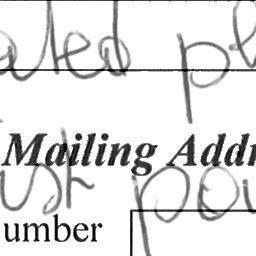 ated pl
Mailing Addr
ust pou
umber